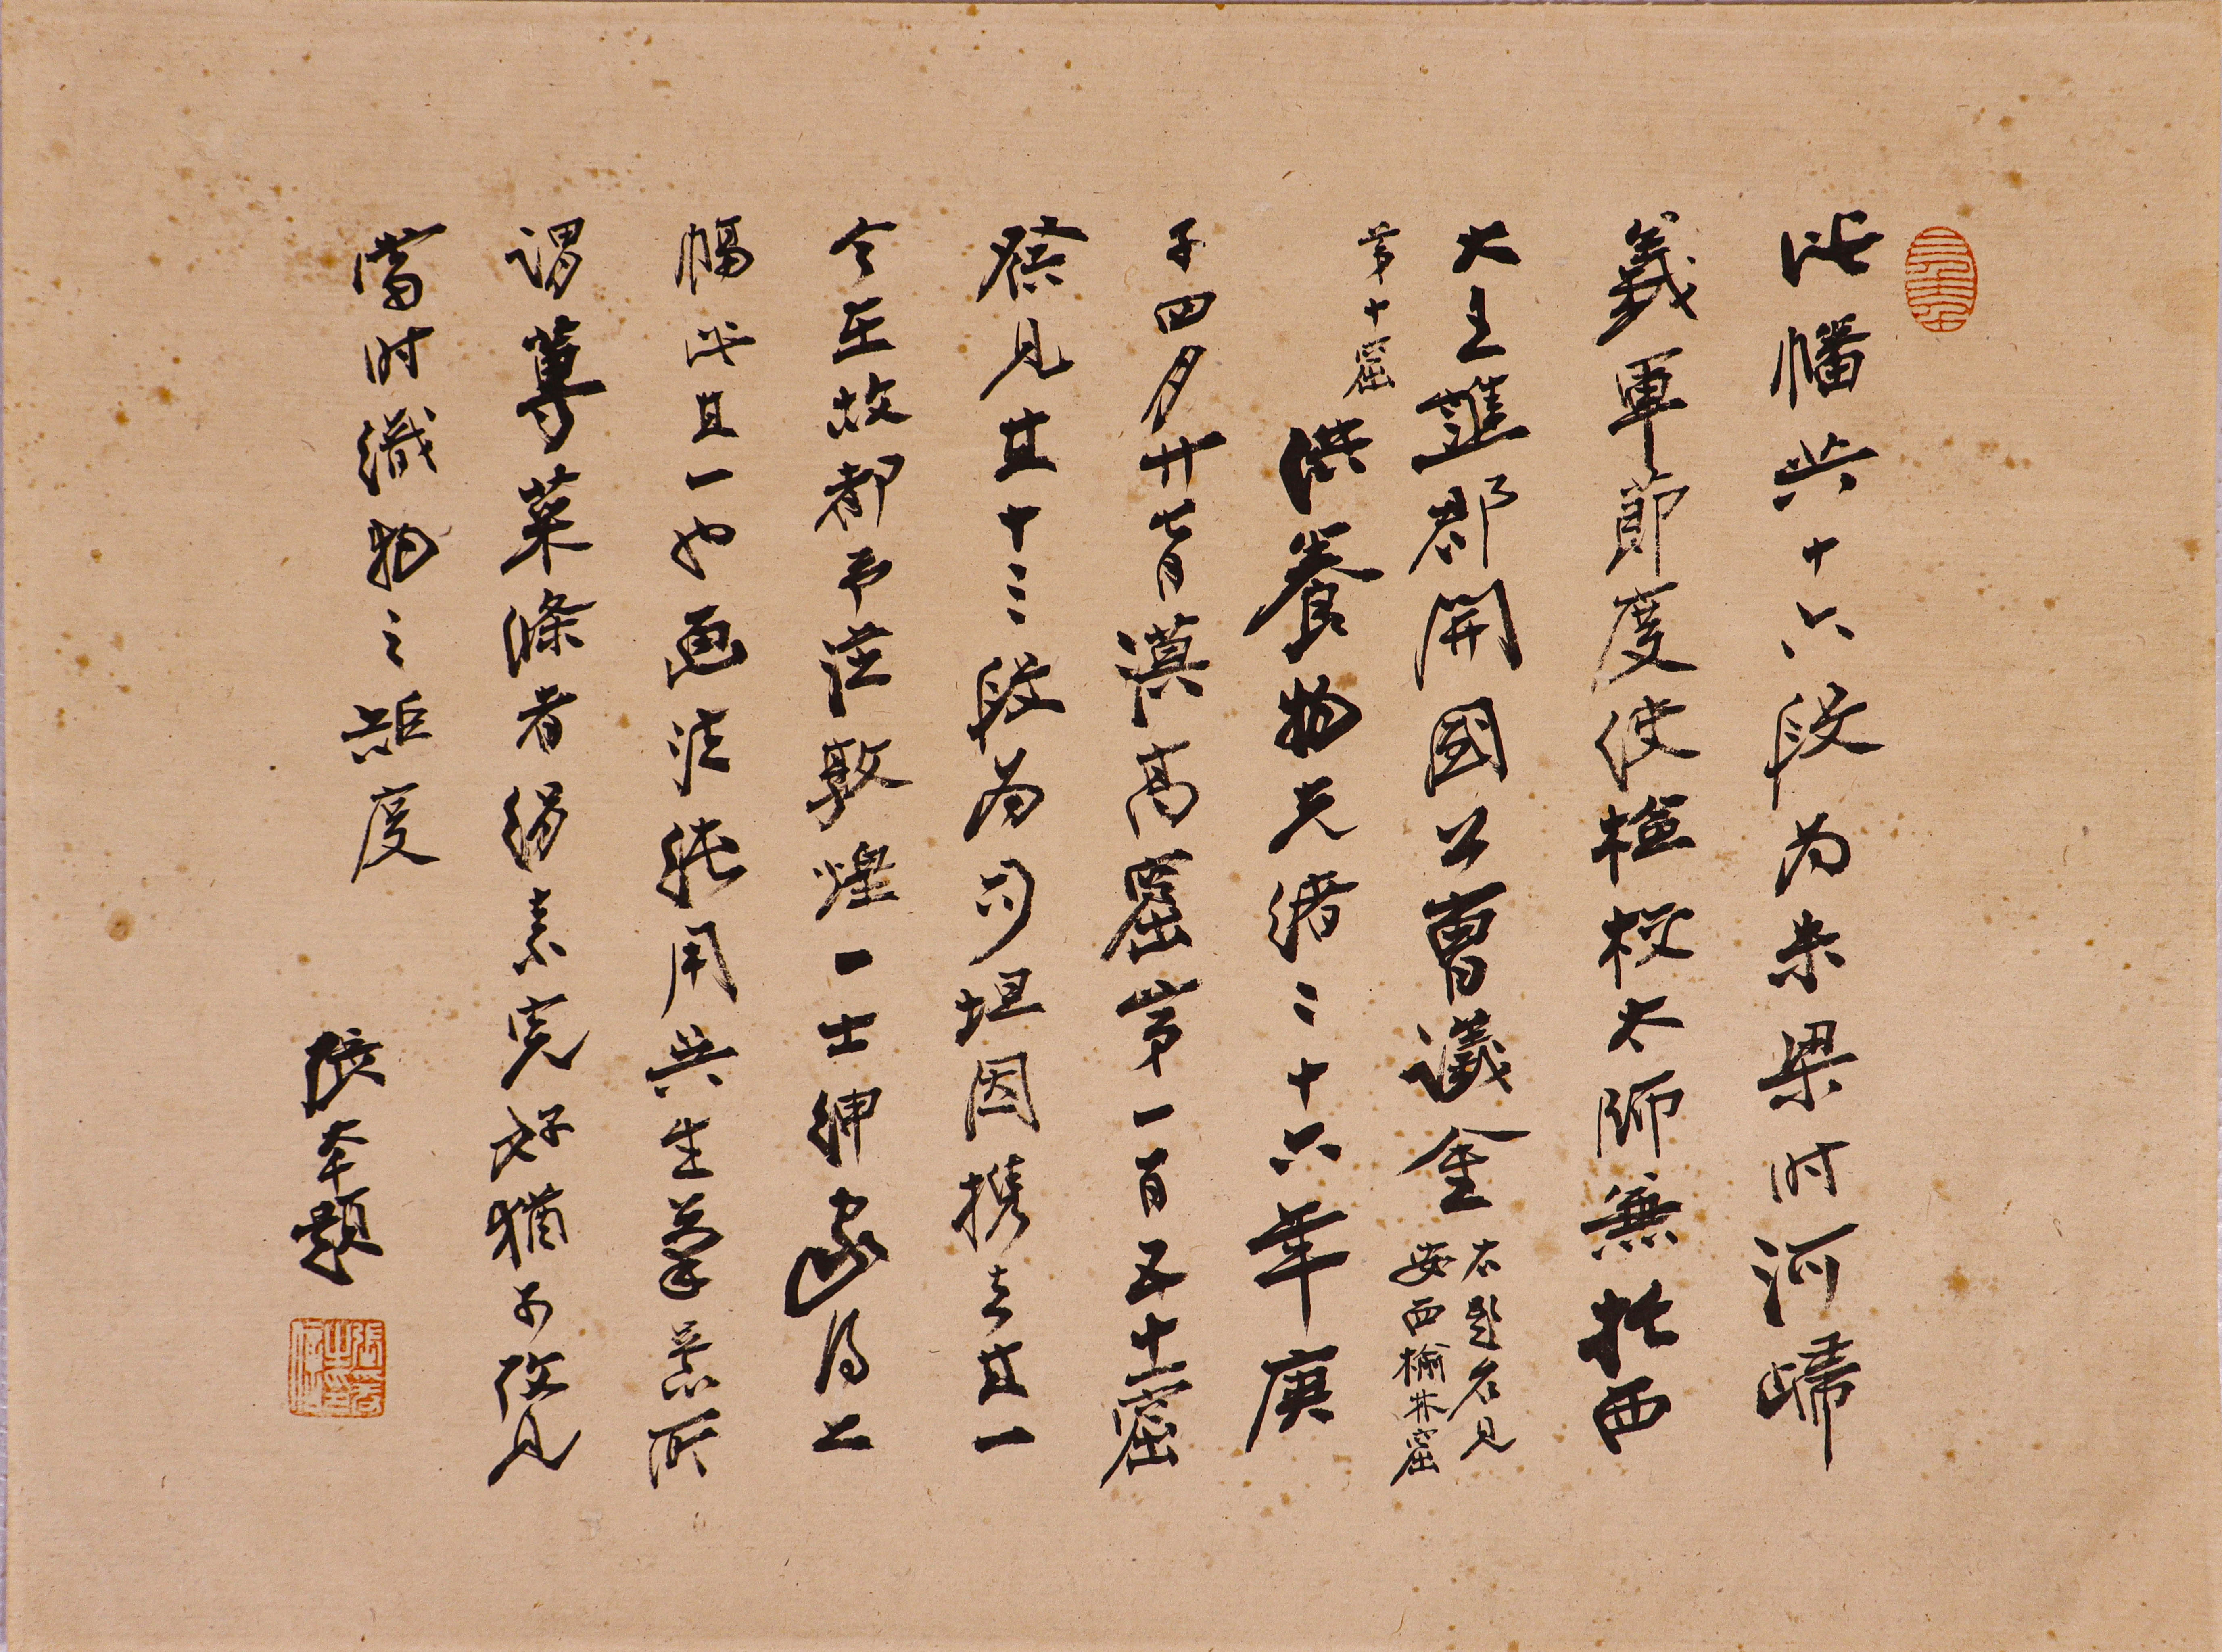 此幡共十六段为朱梁时河歸
義軍節度使檢校太師兼托西
大王譙郡開國公曹議金 右題名見
安西榆林窟
第十窟
供養物光緒二十六年庚
子四月廿七日漠高窟第一百五十一窟
發見其十三段为司坦因携去其一
今在故都予在敦煌一士紳家得二
幅此其一也画法純用吳生筆意所
謂蓴菜條者絹素完好猶可攷見
當时織物之榘度
張大千題